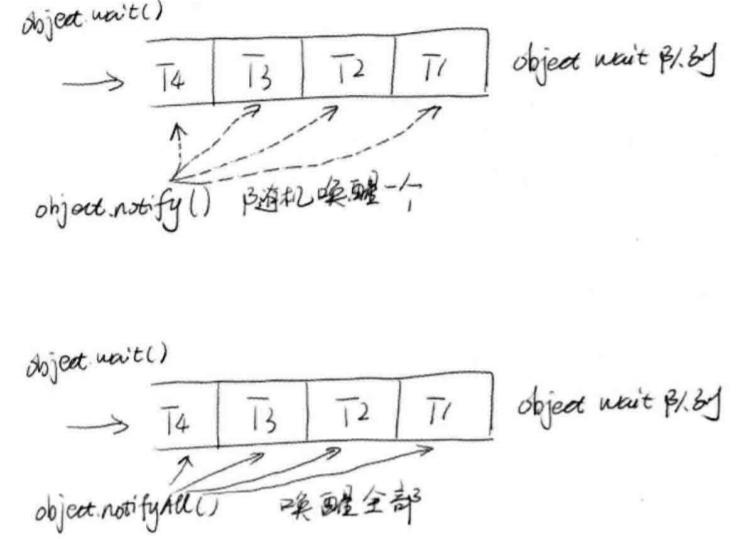 object.wait()
T4 T3 T2 T1 object wait 队列
object.notify() 随机唤醒一个
object.wait()
T4 T3 T2 T1 object wait 队列
object.notifyAll() 唤醒全部